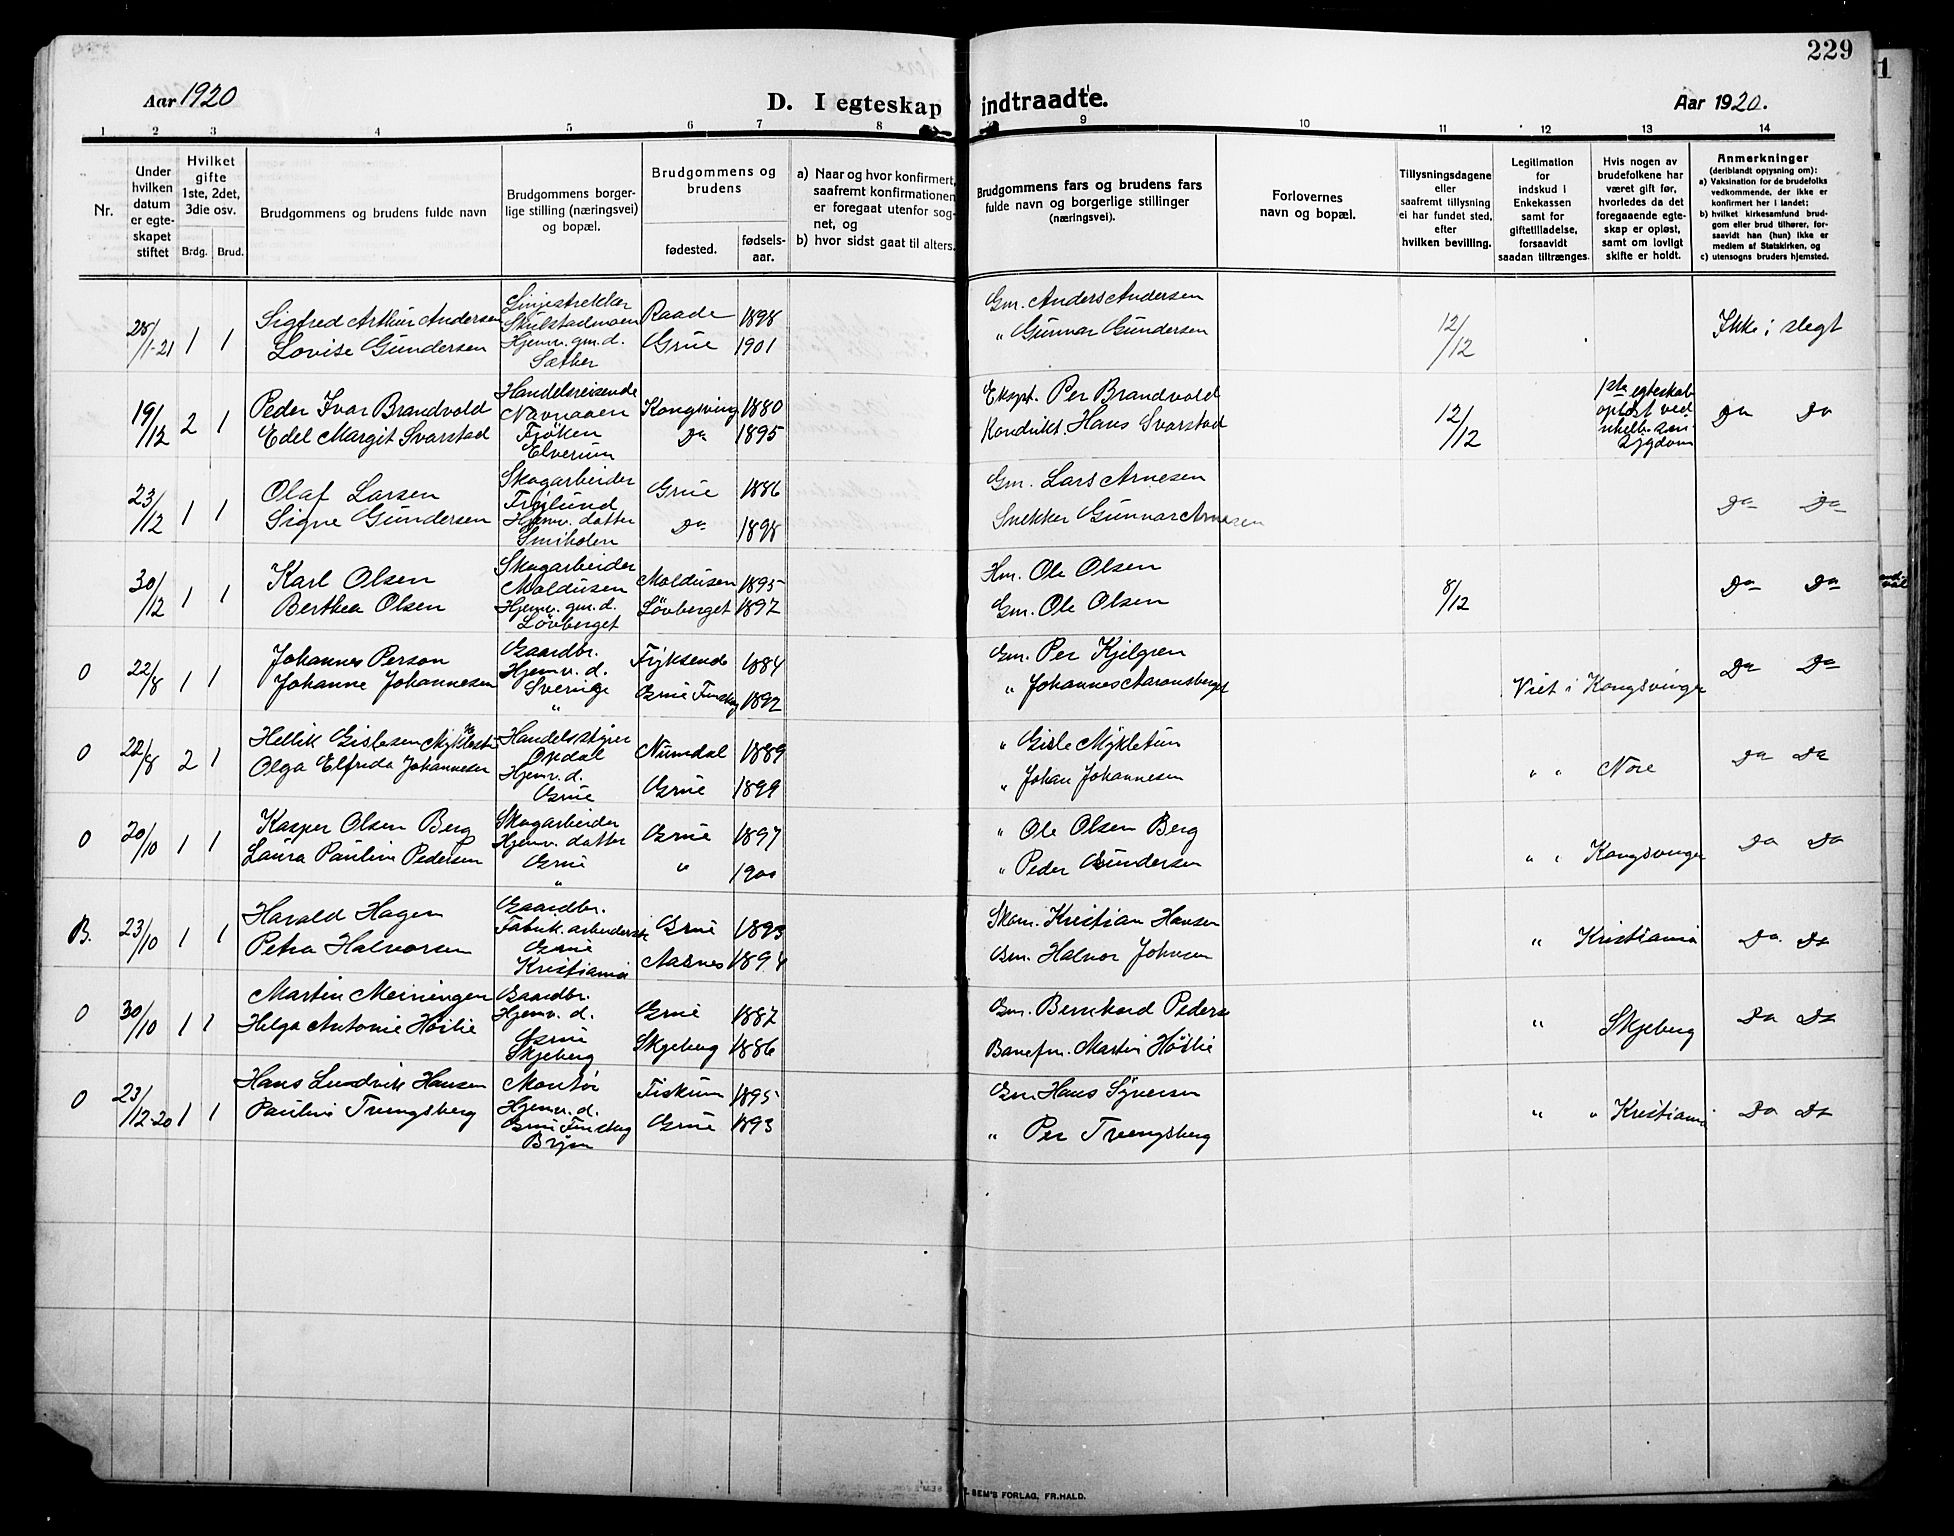 229
Aar 1920
D. I egteskap indtraadte.
Aar 1920.
1 2 3 4 5 6 7 8 9 10 11 12 13 14
Nr.
Under hvilken datum er egteskapet stiftet
Hvilket gifte 1ste, 2det, 3die osv.
Brdg. Brud.
Brudgommens og brudens fulde navn
Brudgommens borgerlige stilling (næringsvei) og bopæl.
Brudgommens og brudens
fødested.
fødselsaar.
a) Naar og hvor konfirmert, saafremt konfirmationen er foregaat utenfor sognet, og
b) hvor sidst gaat til alters.
Brudgommens fars og brudens fars fulde navn og borgerlige stillinger (næringsvei).
Forlovernes navn og bopæl.
Tillysningsdagene eller saafremt tillysning ei har fundet sted, efter hvilken bevilling.
Legitimation for indskud i Enkekassen samt for giftetilladelse, forsaavidt saadan tiltrænges.
Hvis nogen av brudefolkene har været gift før, hvorledes da det foregaaende egteskap er opløst, samt om lovligt skifte er holdt.
Anmerkninger (deriblandt oplysning om):
a) Vaksination for de brudefolks vedkommende, der ikke er konfirmert her i landet;
b) hvilket kirkesamfund brudgom eller brud tilhører, forsaavidt han (hun) ikke er medlem av Statskirken, og
c) utensogns bruders hjemsted.
28/1-21 1 1 Sigfred Arthur Andersen Raade 1898 Gm. Anders Andersen 12/12 Ikke i slegt
Lovise Gundersen Hjemv. gm. d. Sæther Grue 1901 " Gunnar Gundersen
19/12 2 1 Peder Ivar Brandvold Handelsreisende Kongsving 1880 Ekspt. Per Brandvold 12/12 1ste egteskab opløst ved Do Do
Edel Margit Svarstad Elverum Do 1895 Kondukt. Hans Svarstad
23/12 1 1 Olaf Larsen Skogarbeider Grue 1886 Gm. Lars Arnesen Do Do
Signe Gundersen Hjemv. datter Do 1898 Snekker Gunnar Arnesen
30/12 1 1 Karl Olsen Skogarbeider Moldusen Moldusen 1895 Hm. Ole Olsen 8/12 Do Do
Berthea Olsen Hjemv. gm. d. Løvberget Løvberget 1897 Gm. Ole Olsen
O 22/8 1 1 Johannes Person Gaardbr. Fryksende 1884 Gm. Per Kjilgren Viet i Kongsvinger Do Do
Johanne Johannesen Hjemv. d. Sverige " Grue Finskog 1892 " Johannes Aaronsberget
O 22/8 2 1 Hellik Gislesen Mykletun Opdal Numdal 1889 " Gisle Mykletun " " Nore Do Do
Olga Elfrida Johannesen Hjemv. d. Grue Grue 1899 " Johan Johannesen
O 20/10 1 1 Kasper Olsen Berg Skogarbeider Grue 1897 " Ole Olsen Berg " " Kongsvinger Do Do
Laura Pauline Pedersen Hjemv. datter Grue " " 1900 " Peder Gundersen
B. 23/10 1 1 Harald Hagen Gaardbr. Grue 1893 Skom. Kristian Hansen " Kristiania Do Do
Petra Halvorsen Fabrik. arbeiderske Grue Kristiania Aasnes 1894 Gm. Halvor Johnsen
O 30/10 1 1 Martin Meiningen Gaardbr. Grue 1887 Gm. Bernhard Peders " Skjeberg Do Do
Helga Antonie Høilie Hjemv. d. Grue Skjeberg Skjeberg 1886 Banefm. Martin Høilie
O 23/12-20 1 1 Hans Ludvik Hansen Montør Fiskum 1895 Gm Hans Syversen " " Kristiania Do Do
Pauline Tvengsberg Hjemv. d. Grue Finskog Bryn Grue 1893 " Per Tvengsberg
SEM'S FORLAG, FR.HALD.